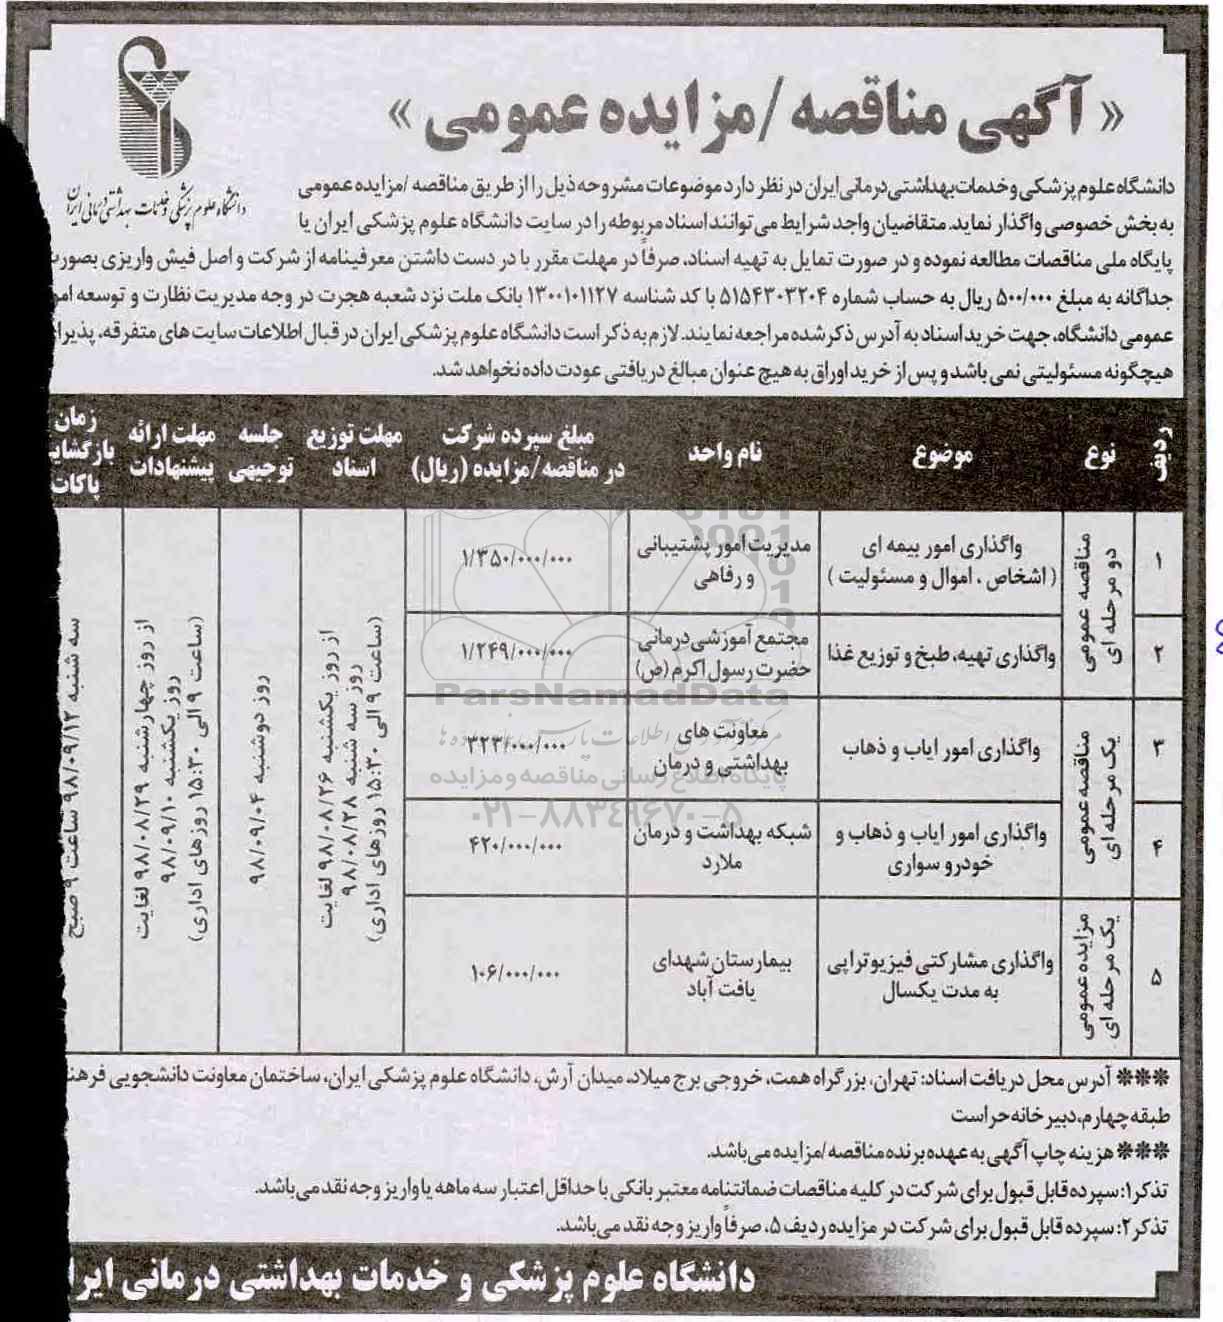 « آگهی مناقصه/مزایده عمومی »
دانشگاه علوم پزشکی و خدمات بهداشتی درمانی ایران
دانشگاه علوم پزشکی و خدمات بهداشتی درمانی ایران در نظر دارد موضوعات مشروحه ذیل را از طریق مناقصه/مزایده عمومی
به بخش خصوصی واگذار نماید. متقاضیان واجد شرایط می توانند اسناد مربوطه را در سایت دانشگاه علوم پزشکی ایران یا
پایگاه ملی مناقصات مطالعه نموده و در صورت تمایل به تهیه اسناد، صرفاً در مهلت مقرر با در دست داشتن معرفینامه از شرکت و اصل فیش واریزی بصورت
جداگانه به مبلغ ۵۰۰/۰۰۰ ریال به حساب شماره ۵۱۵۴۳۰۳۲۰۴ با کد شناسه ۱۳۰۰۱۰۱۱۲۷ بانک ملت نزد شعبه هجرت در وجه مدیریت نظارت و توسعه امو
عمومی دانشگاه، جهت خرید اسناد به آدرس ذکر شده مراجعه نمایند. لازم به ذکر است دانشگاه علوم پزشکی ایران در قبال اطلاعات سایت های متفرقه، پذیرا
هیچگونه مسئولیتی نمی باشد و پس از خرید اوراق به هیچ عنوان مبالغ دریافتی عودت داده نخواهد شد.
ردیف نوع موضوع نام واحد مبلغ سپرده شرکت در مناقصه/مزایده (ریال) مهلت توزیع اسناد جلسه توجیهی مهلت ارائه پیشنهادات زمان بازگشایی پاکات
۱ مناقصه عمومی دو مرحله ای واگذاری امور بیمه ای (اشخاص، اموال و مسئولیت) مدیریت امور پشتیبانی و رفاهی ۱/۳۵۰/۰۰۰/۰۰۰
۲ واگذاری تهیه، طبخ و توزیع غذا مجتمع آموزشی درمانی حضرت رسول اکرم (ص) ۱/۲۴۹/۰۰۰/۰۰۰
۳ مناقصه عمومی یک مرحله ای واگذاری امور ایاب و ذهاب معاونت های بهداشتی و درمان ۳۲۳/۰۰۰/۰۰۰
۴ واگذاری امور ایاب و ذهاب و خودرو سواری شبکه بهداشت و درمان ملارد ۴۲۰/۰۰۰/۰۰۰
۵ مزایده عمومی یک مرحله ای واگذاری مشارکتی فیزیوتراپی به مدت یکسال بیمارستان شهدای یافت آباد ۱۰۶/۰۰۰/۰۰۰
از روز یکشنبه ۹۸/۰۸/۲۶ لغایت
روز سه شنبه ۹۸/۰۸/۲۸
(ساعت ۹ الی ۱۵:۳۰ روزهای اداری)
روز دوشنبه ۹۸/۰۹/۰۴
از روز چهارشنبه ۹۸/۰۸/۲۹ لغایت
روز یکشنبه ۹۸/۰۹/۱۰
(ساعت ۹ الی ۱۵:۳۰ روزهای اداری)
سه شنبه ۹۸/۰۹/۱۲ ساعت ۹ صبح
ParsNamadData
پایگاه اطلاع رسانی مناقصه و مزایده
۰۲۱-۸۸۳۴۹۶۷۰-۵
*** آدرس محل دریافت اسناد: تهران، بزرگراه همت، خروجی برج میلاد، میدان آرش، دانشگاه علوم پزشکی ایران، ساختمان معاونت دانشجویی فرهن
طبقه چهارم، دبیرخانه حراست
*** هزینه چاپ آگهی به عهده برنده مناقصه/مزایده می باشد.
تذکر ۱: سپرده قابل قبول برای شرکت در کلیه مناقصات ضمانتنامه معتبر بانکی با حداقل اعتبار سه ماهه یا واریز وجه نقد می باشد.
تذکر ۲: سپرده قابل قبول برای شرکت در مزایده ردیف ۵، صرفاً واریز وجه نقد می باشد.
دانشگاه علوم پزشکی و خدمات بهداشتی درمانی ایرا